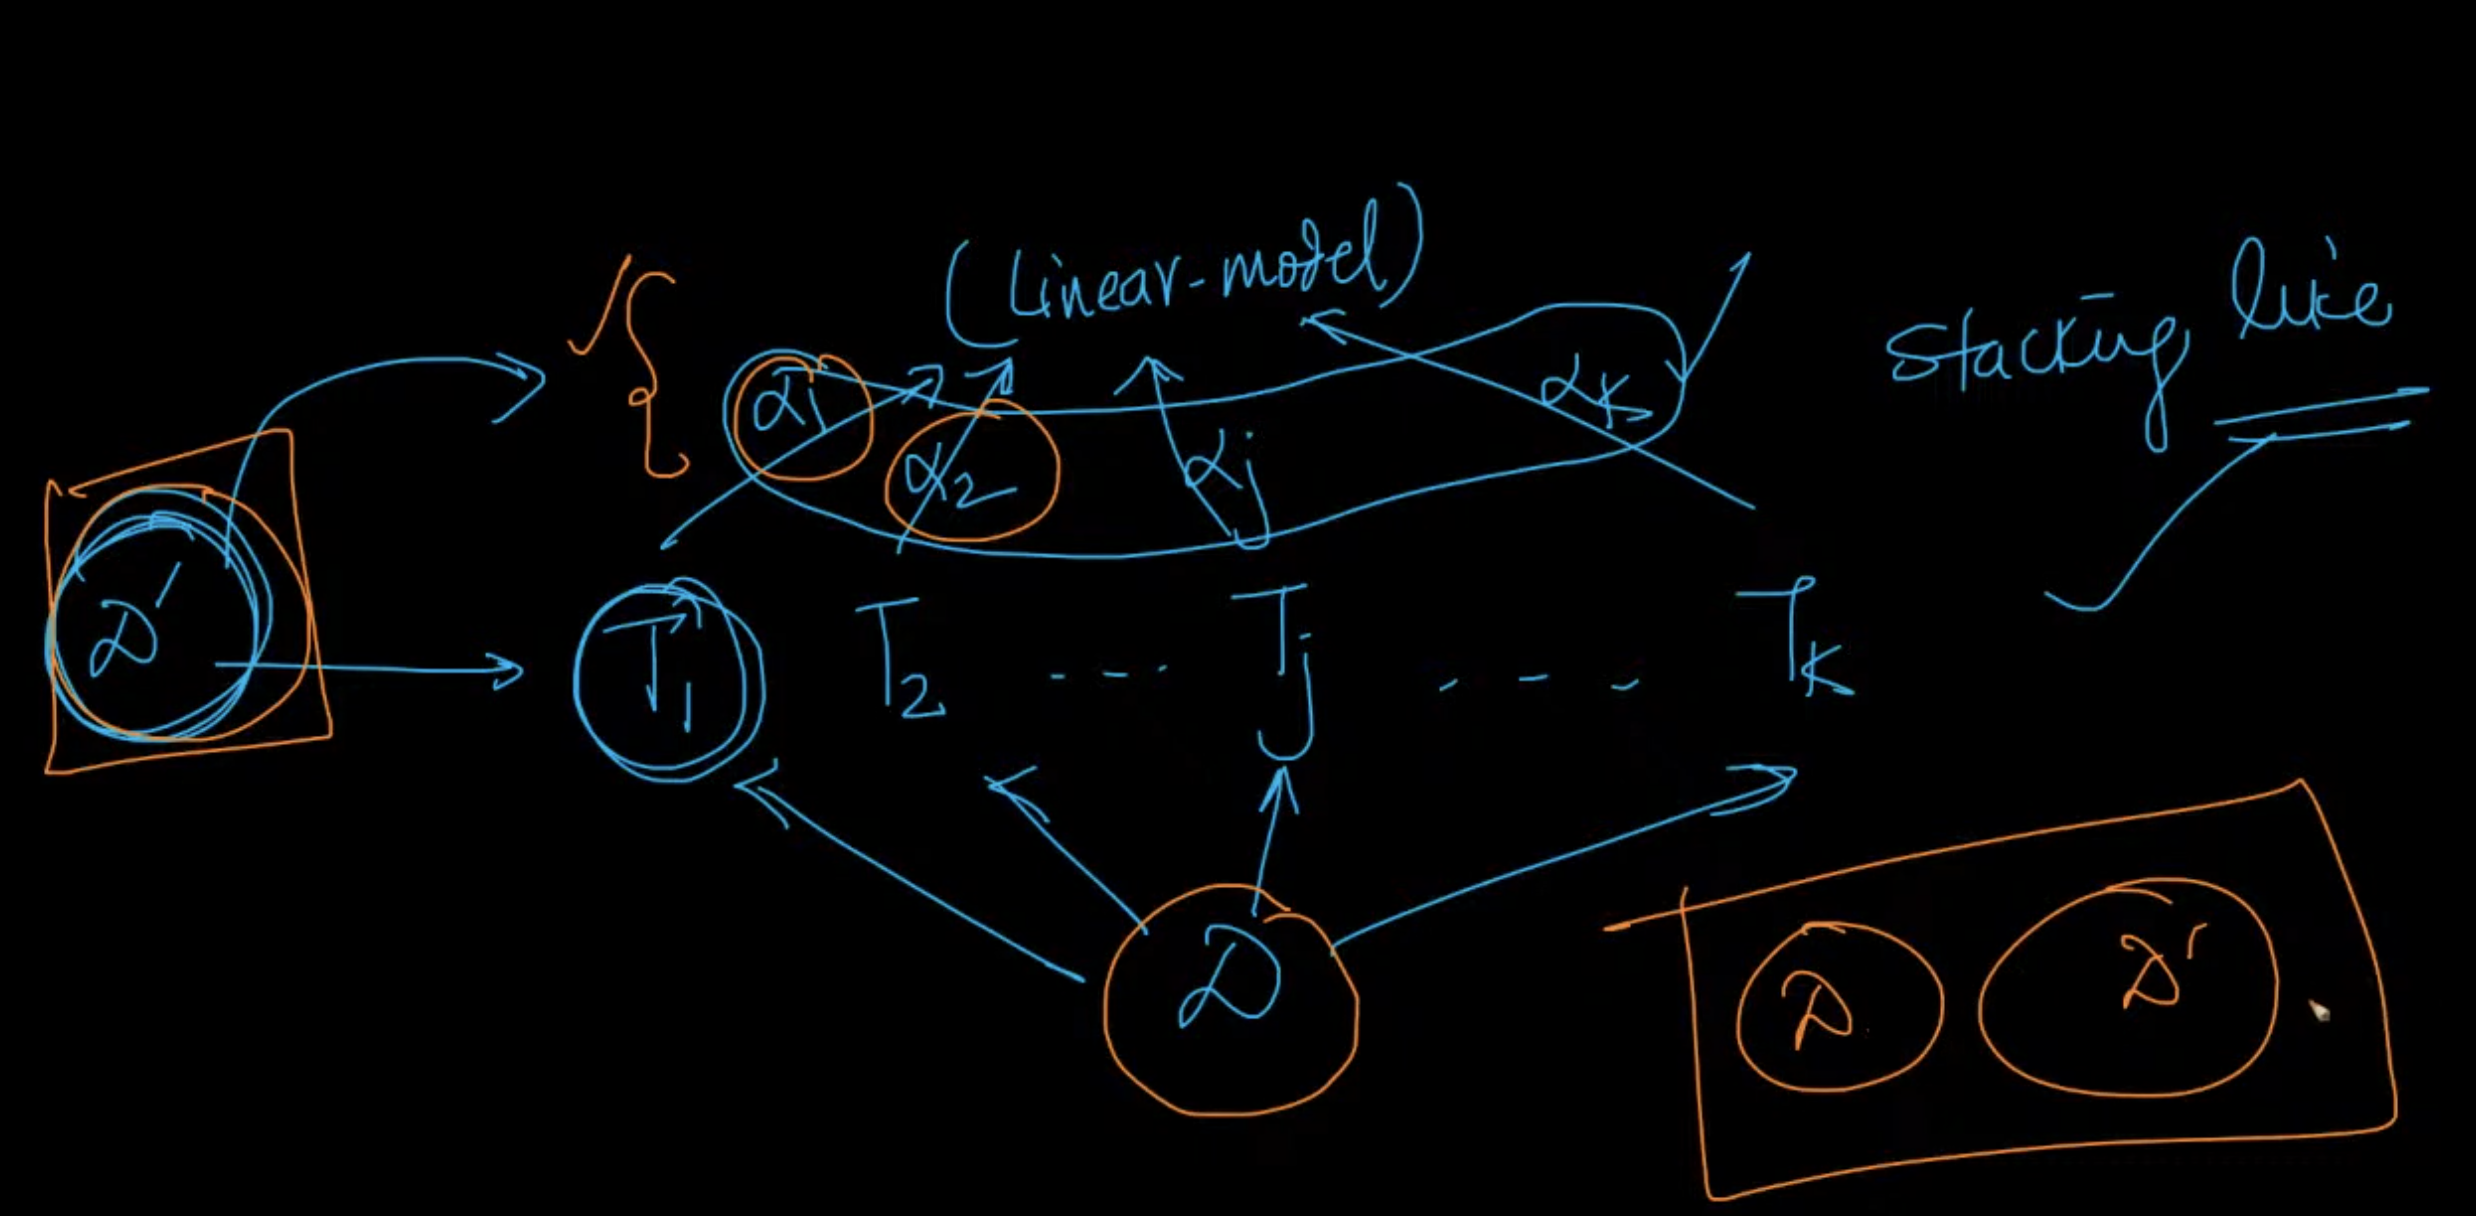 (Linear-model)
stacking like
α1 α2 αj αk
D'
T1 T2 --- Tj --- Tk
D
D D'